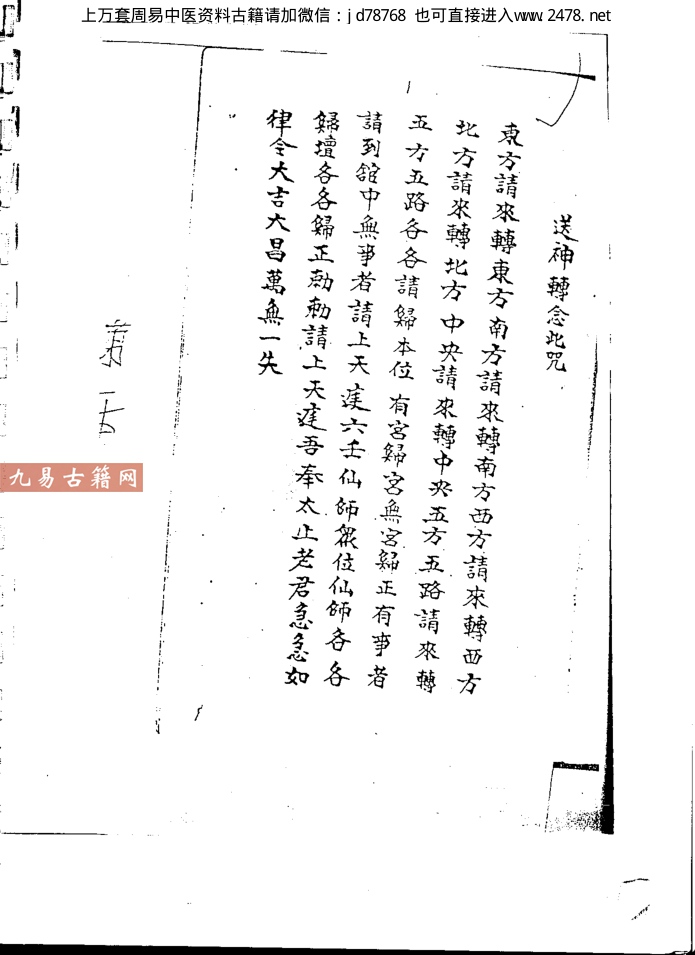 上万套周易中医资料古籍请加微信：jd78768 也可直接进入www.2478.net
送神轉念此咒
東方請來轉東方南方請來轉南方西方請來轉西方
北方請來轉北方中央請來轉中央五方五路請來轉
五方五路各各請歸本位有宮歸宮無宮歸正有事者
請到舘中無事者請上天庭六壬仙師眾位仙師各各
歸壇各各歸正勑勑請上天庭吾奉太上老君急急如
律令大吉大昌萬無一失
九易古籍网